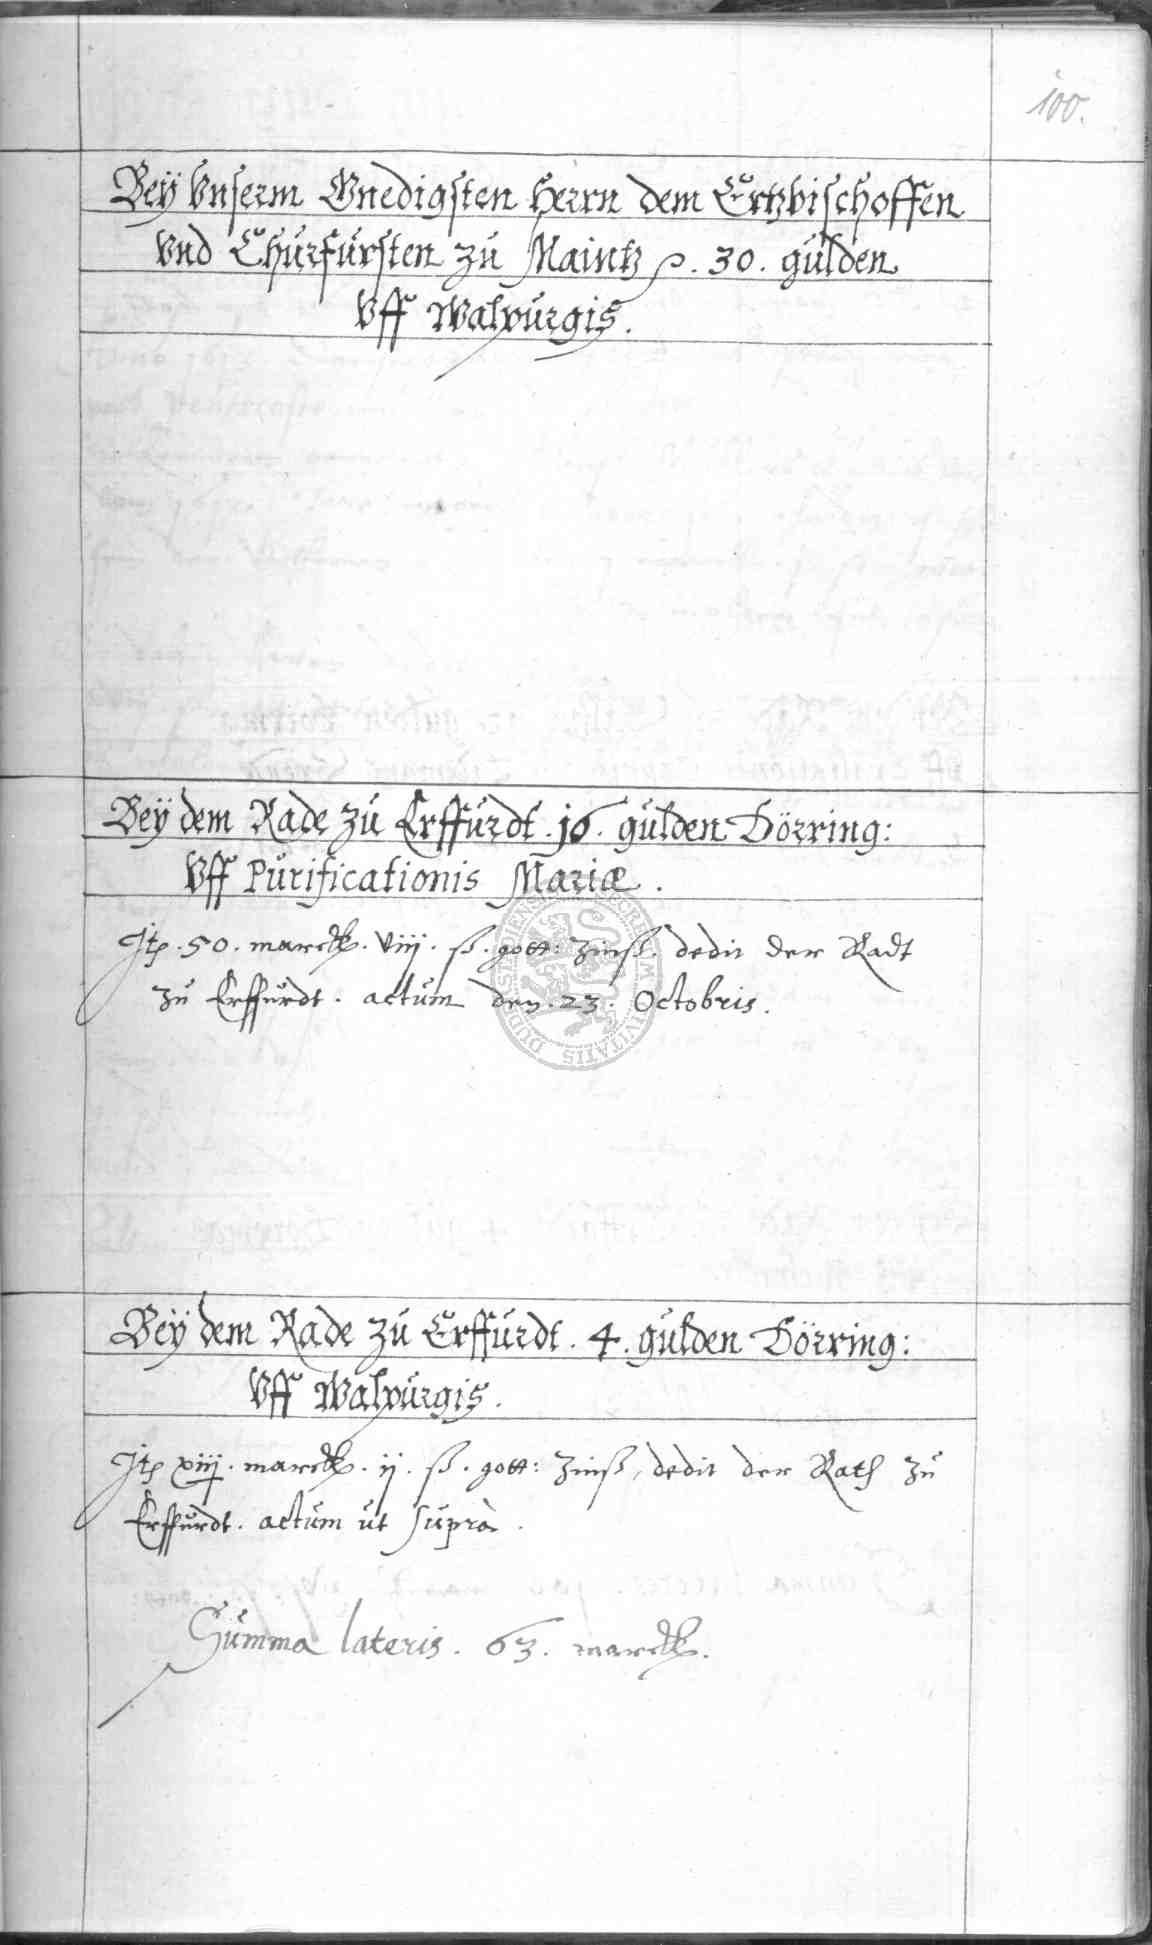 100.
Beÿ Vnserm Gnedigsten Herrn dem Ertzbischoffen
Vnd Churfursten zu Maintz p. 30. gulden
Vff Walpurgis.
Beÿ dem Rade zu Erffurdt. 16. gulden Dörring:
Vff Purificationis Mariæ.
Itp. 50. marck. viij. ß. gott: Zinß. dedit der Radt
zu Erffurdt. actum den. 23. Octobris.
SECRETVM CIVITATIS DUD
Beÿ dem Rade zu Erffurdt. 4. gulden Dörring:
Vff Walpurgis.
Itp xiij. marck. ij. ß. gott: Zinß, dedit der Rath zu
Erffurdt. actum ut supra.
Summa lateris. 63. marck.